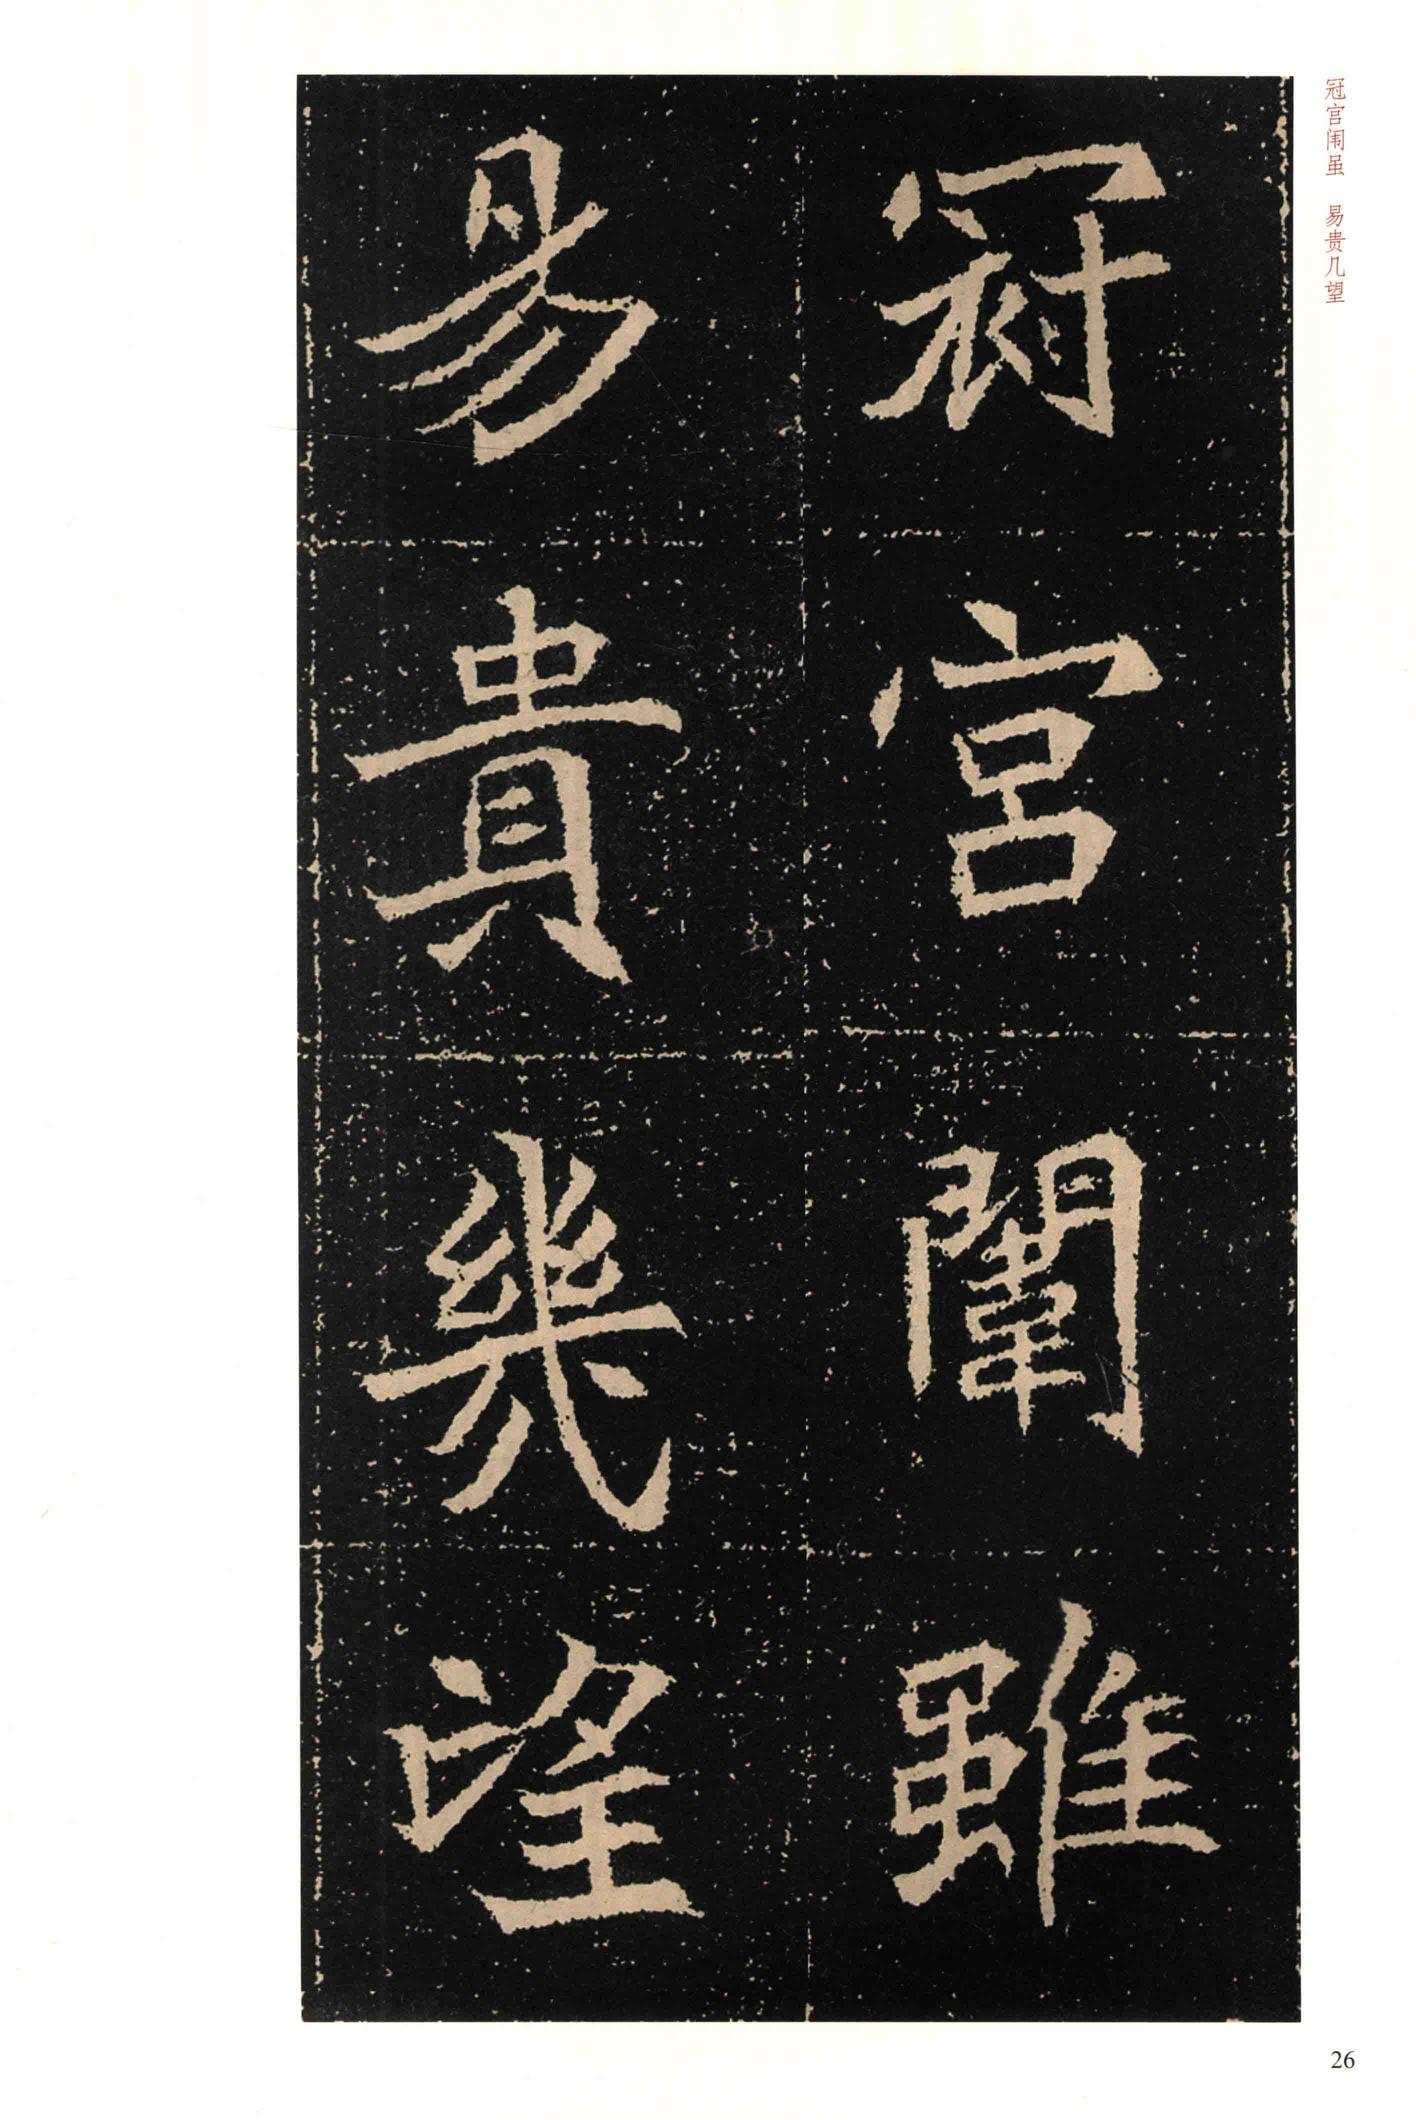 冠宫闱虽 易贵几望
冠宮闈雖
易貴幾望
26